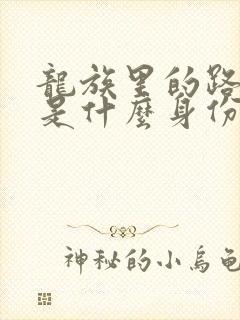 龍族里的路
是什麼身份
神秘的小烏龜